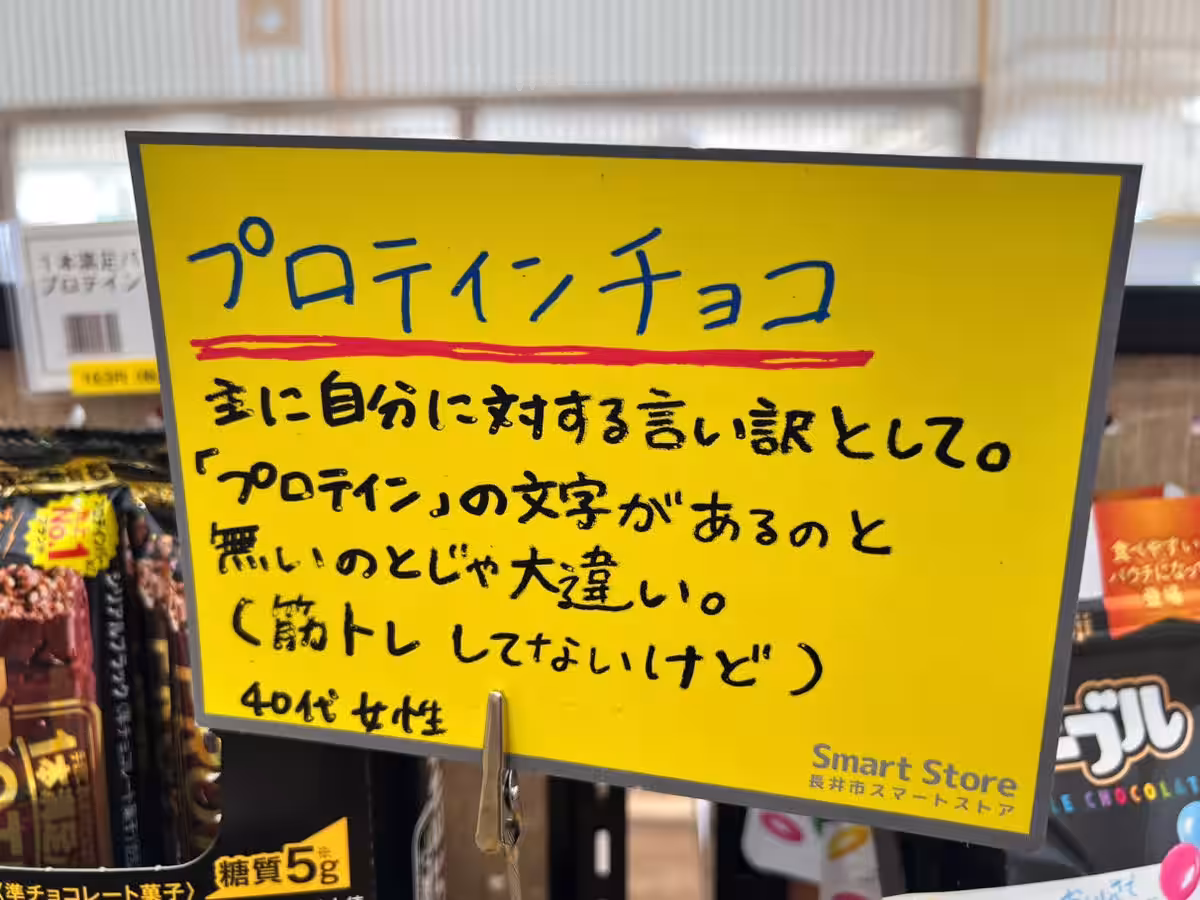 プロテインチョコ
主に自分に対する言い訳として。
「プロテイン」の文字があるのと
無いのとじゃ大違い。
(筋トレしてないけど)
40代女性
Smart Store
長井市スマートストア
1本満足バ
プロテイン
163円
No.1
シリアルブラック
1本満足
糖質5g※
(準チョコレート菓子)
食べやすい
パウチになって
登場
ーブル
LE CHOCOLAT